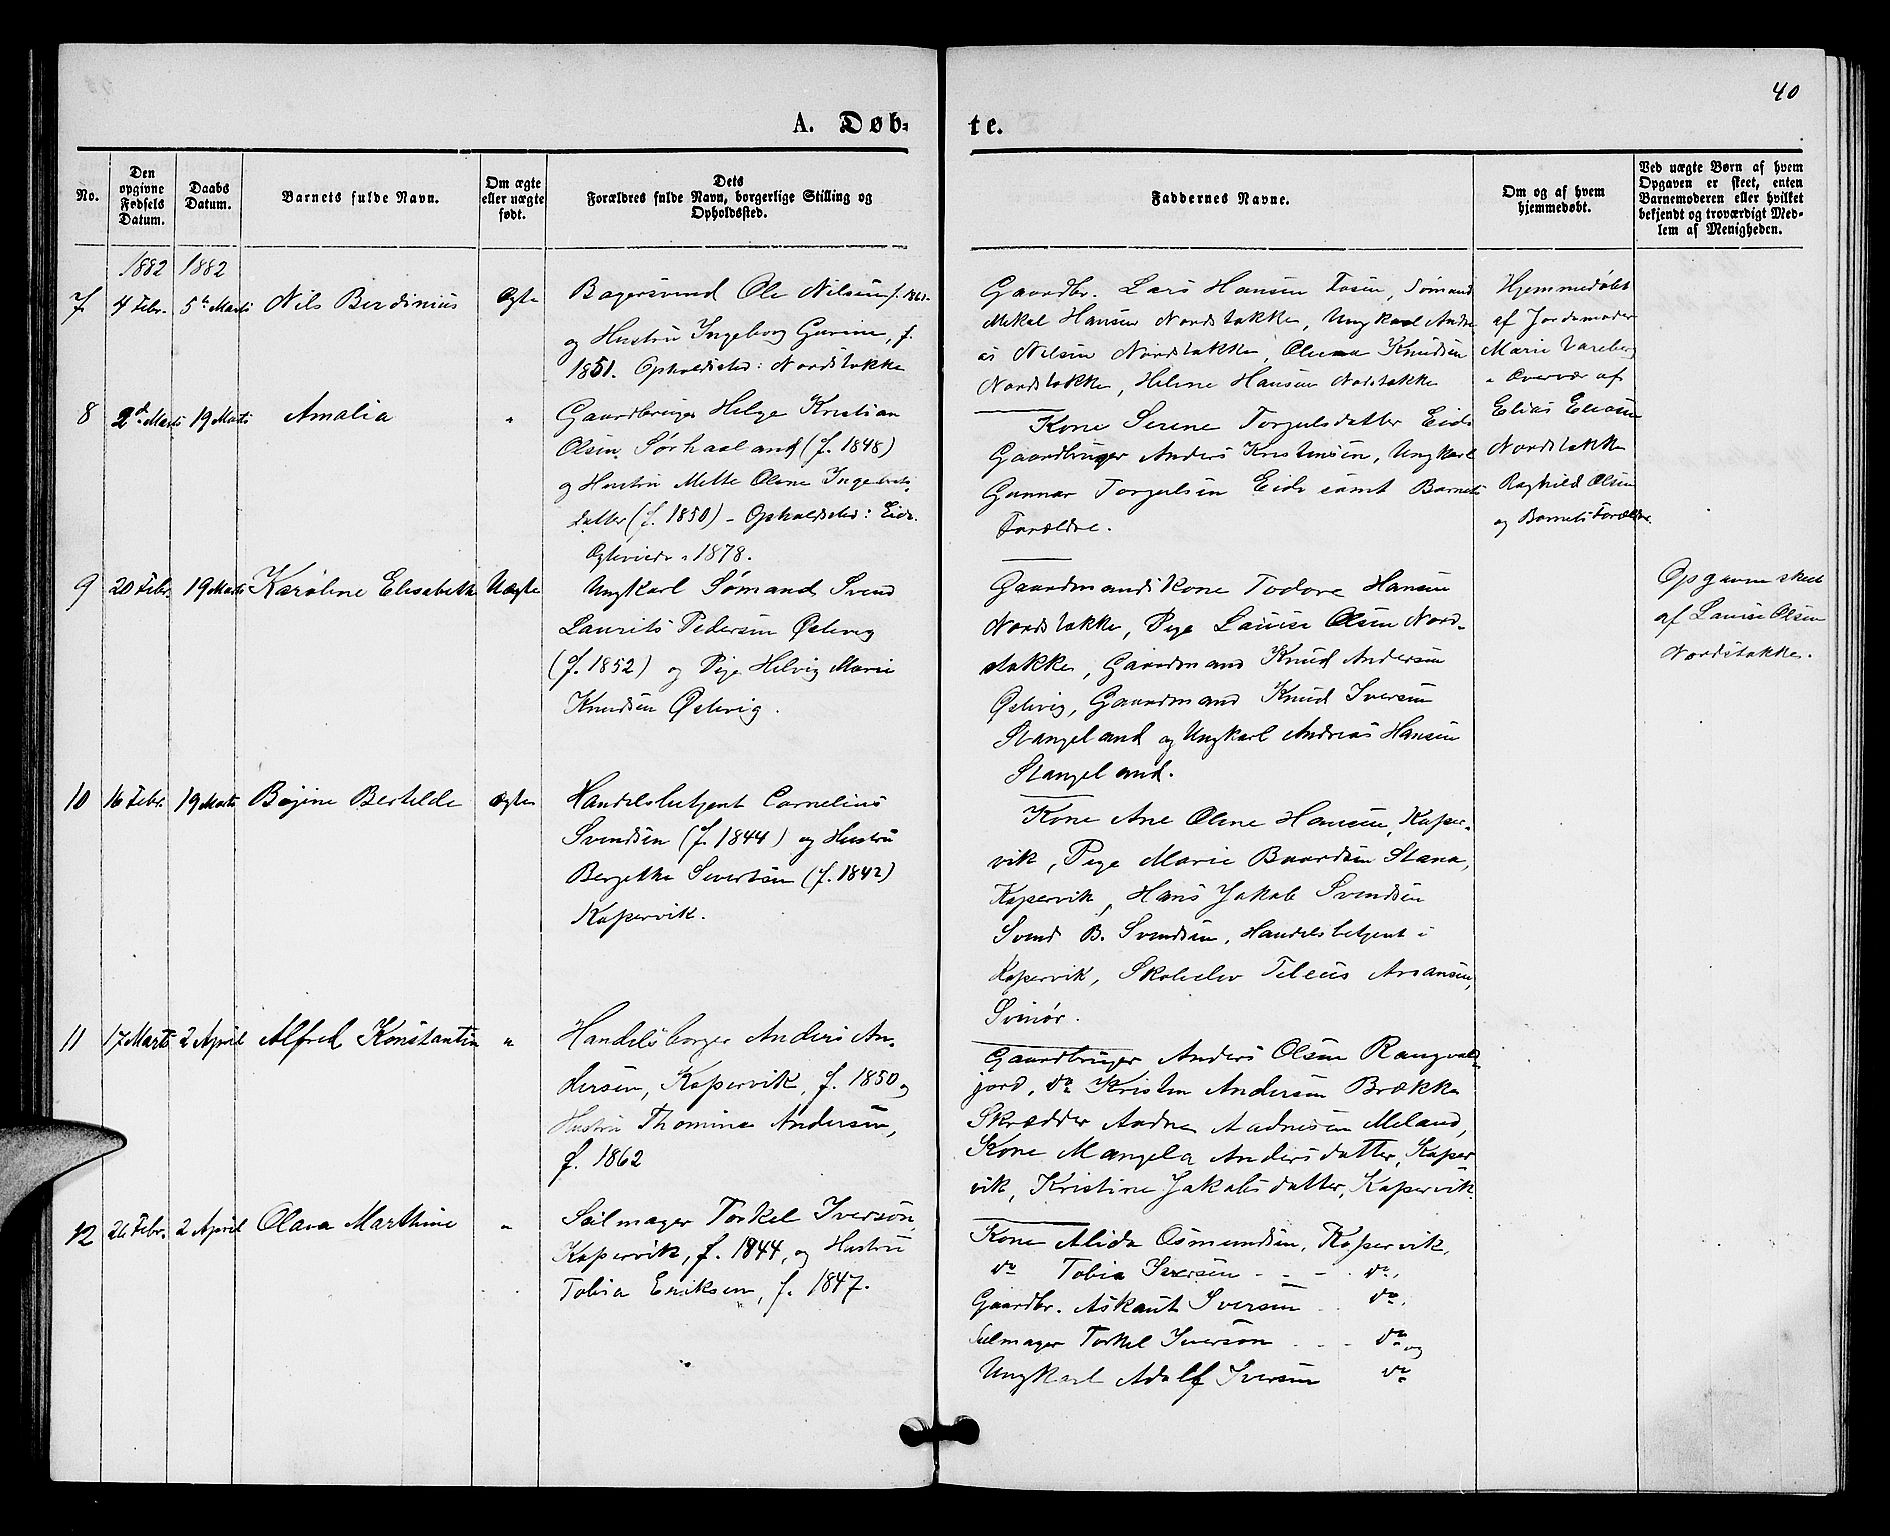 40
A. Døb-
te.
No.
Den opgivne Fødsels Datum.
Daabs Datum.
Barnets fulde Navn.
Om ægte eller uægte født.
Dets Forældres fulde Navn, borgerlige Stilling og Opholdssted.
Faddernes Navne.
Om og af hvem hjemmedøbt.
Ved uægte Børn af hvem Opgaven er skeet, enten Barnemoderen eller hvilket bekjendt og troværdigt Medlem af Menigheden.
1882 1882
7 4 Febr. 5te Marts Nils Berdinius Ægte
Bagersvend Ole Nilsen f.
og Hustru Ingeborg Gurine, f.
1851. Opholdssted: Nordstokke
Gaardbr. Lars Hansen Tosen, Sømand
Mekal Hansen Nordstokke, Ungkarl Andre
as Nilsen Nordstokke, Olena Knudsen
Nordstokke, Helene Hansen Nordstokke
Hjemmedøbt
af Jordemoder
Marie Vareberg
i Overvær af
Elias Eliasen
Nordstokke
Raghild Olsen
og Barnets Forældre.
8 2d Marts 19 Marts Amalia "
Gaardbruger Helge Kristian
Olsen Sørhaaland (f. 1848)
og Hustru Mette Olene Ingebrets-
datter (f. 1850) - Opholdssted: Eide.
Ægteviede i 1878.
Kone Serene Torgilsdatter Eide
Gaardbruger Anders Kristensen, Ungkarl
Gunnar Torgilsen Eide samt Barnets
Forældre.
9 20 Febr. 19 Marts Karoline Elisabeth Uægte
Ungkarl Sømand Svend
Laurits Pedersen Østevig
(f. 1852) og Pige Helvig Marie
Knudsen Østevig.
Gaardmandskone Todore Hansen
Nordstokke, Pige Lauise Olsen Nord-
stokke, Gaardmand Knud Andersen
Østevig, Gaardmand Knud Iversen
Stangeland og Ungkarl Andreas Hansen
Stangeland.
Opgaven skeet
af Lauise Olsen
Nordstokke.
10 16 Febr. 19 Marts Bøjine Bertelde Ægte
Handelsbetjent Cornelius
Svendsen (f. 1844) og Hustru
Berjette Sivertsen (f. 1842)
Kopervik.
Kone Ane Olene Hansen, Koper-
vik, Pige Marie Baardsen Stana,
Kopervik, Hans Jakob Svendsen
Svend B. Svendsen, Handelsbetjent i
Kopervik, Skoleelev Teleus Amansen,
Svinør.
11 17 Marts 2 April Alfred Konstantin "
Handelsborger Anders An-
dersen, Kopervik, f. 1850 og
Hustru Thomine Andersen,
f. 1862
Gaardbruger Anders Olsen Rangvald-
jord, do Kristen Andersen Brække
Skrædder Andreas Aadnesen Meland,
Kone Mangela Andersdatter, Koper
vik, Kristine Jakobsdatter, Kopervik
12 26 Febr. 2 April Olava Marthine "
Seilmager Torkel Iverson,
Kopervik, f. 1844, og Hustru
Tobia Eriksen, f. 1847.
Kone Alida Osmundsen, Kopervik,
do Tobia Iversen - - - do,
Gaardbr. Askaut Iversen do,
Seilmager Torkel Iverson - - - do og
Ungkarl Adolf Iversen do